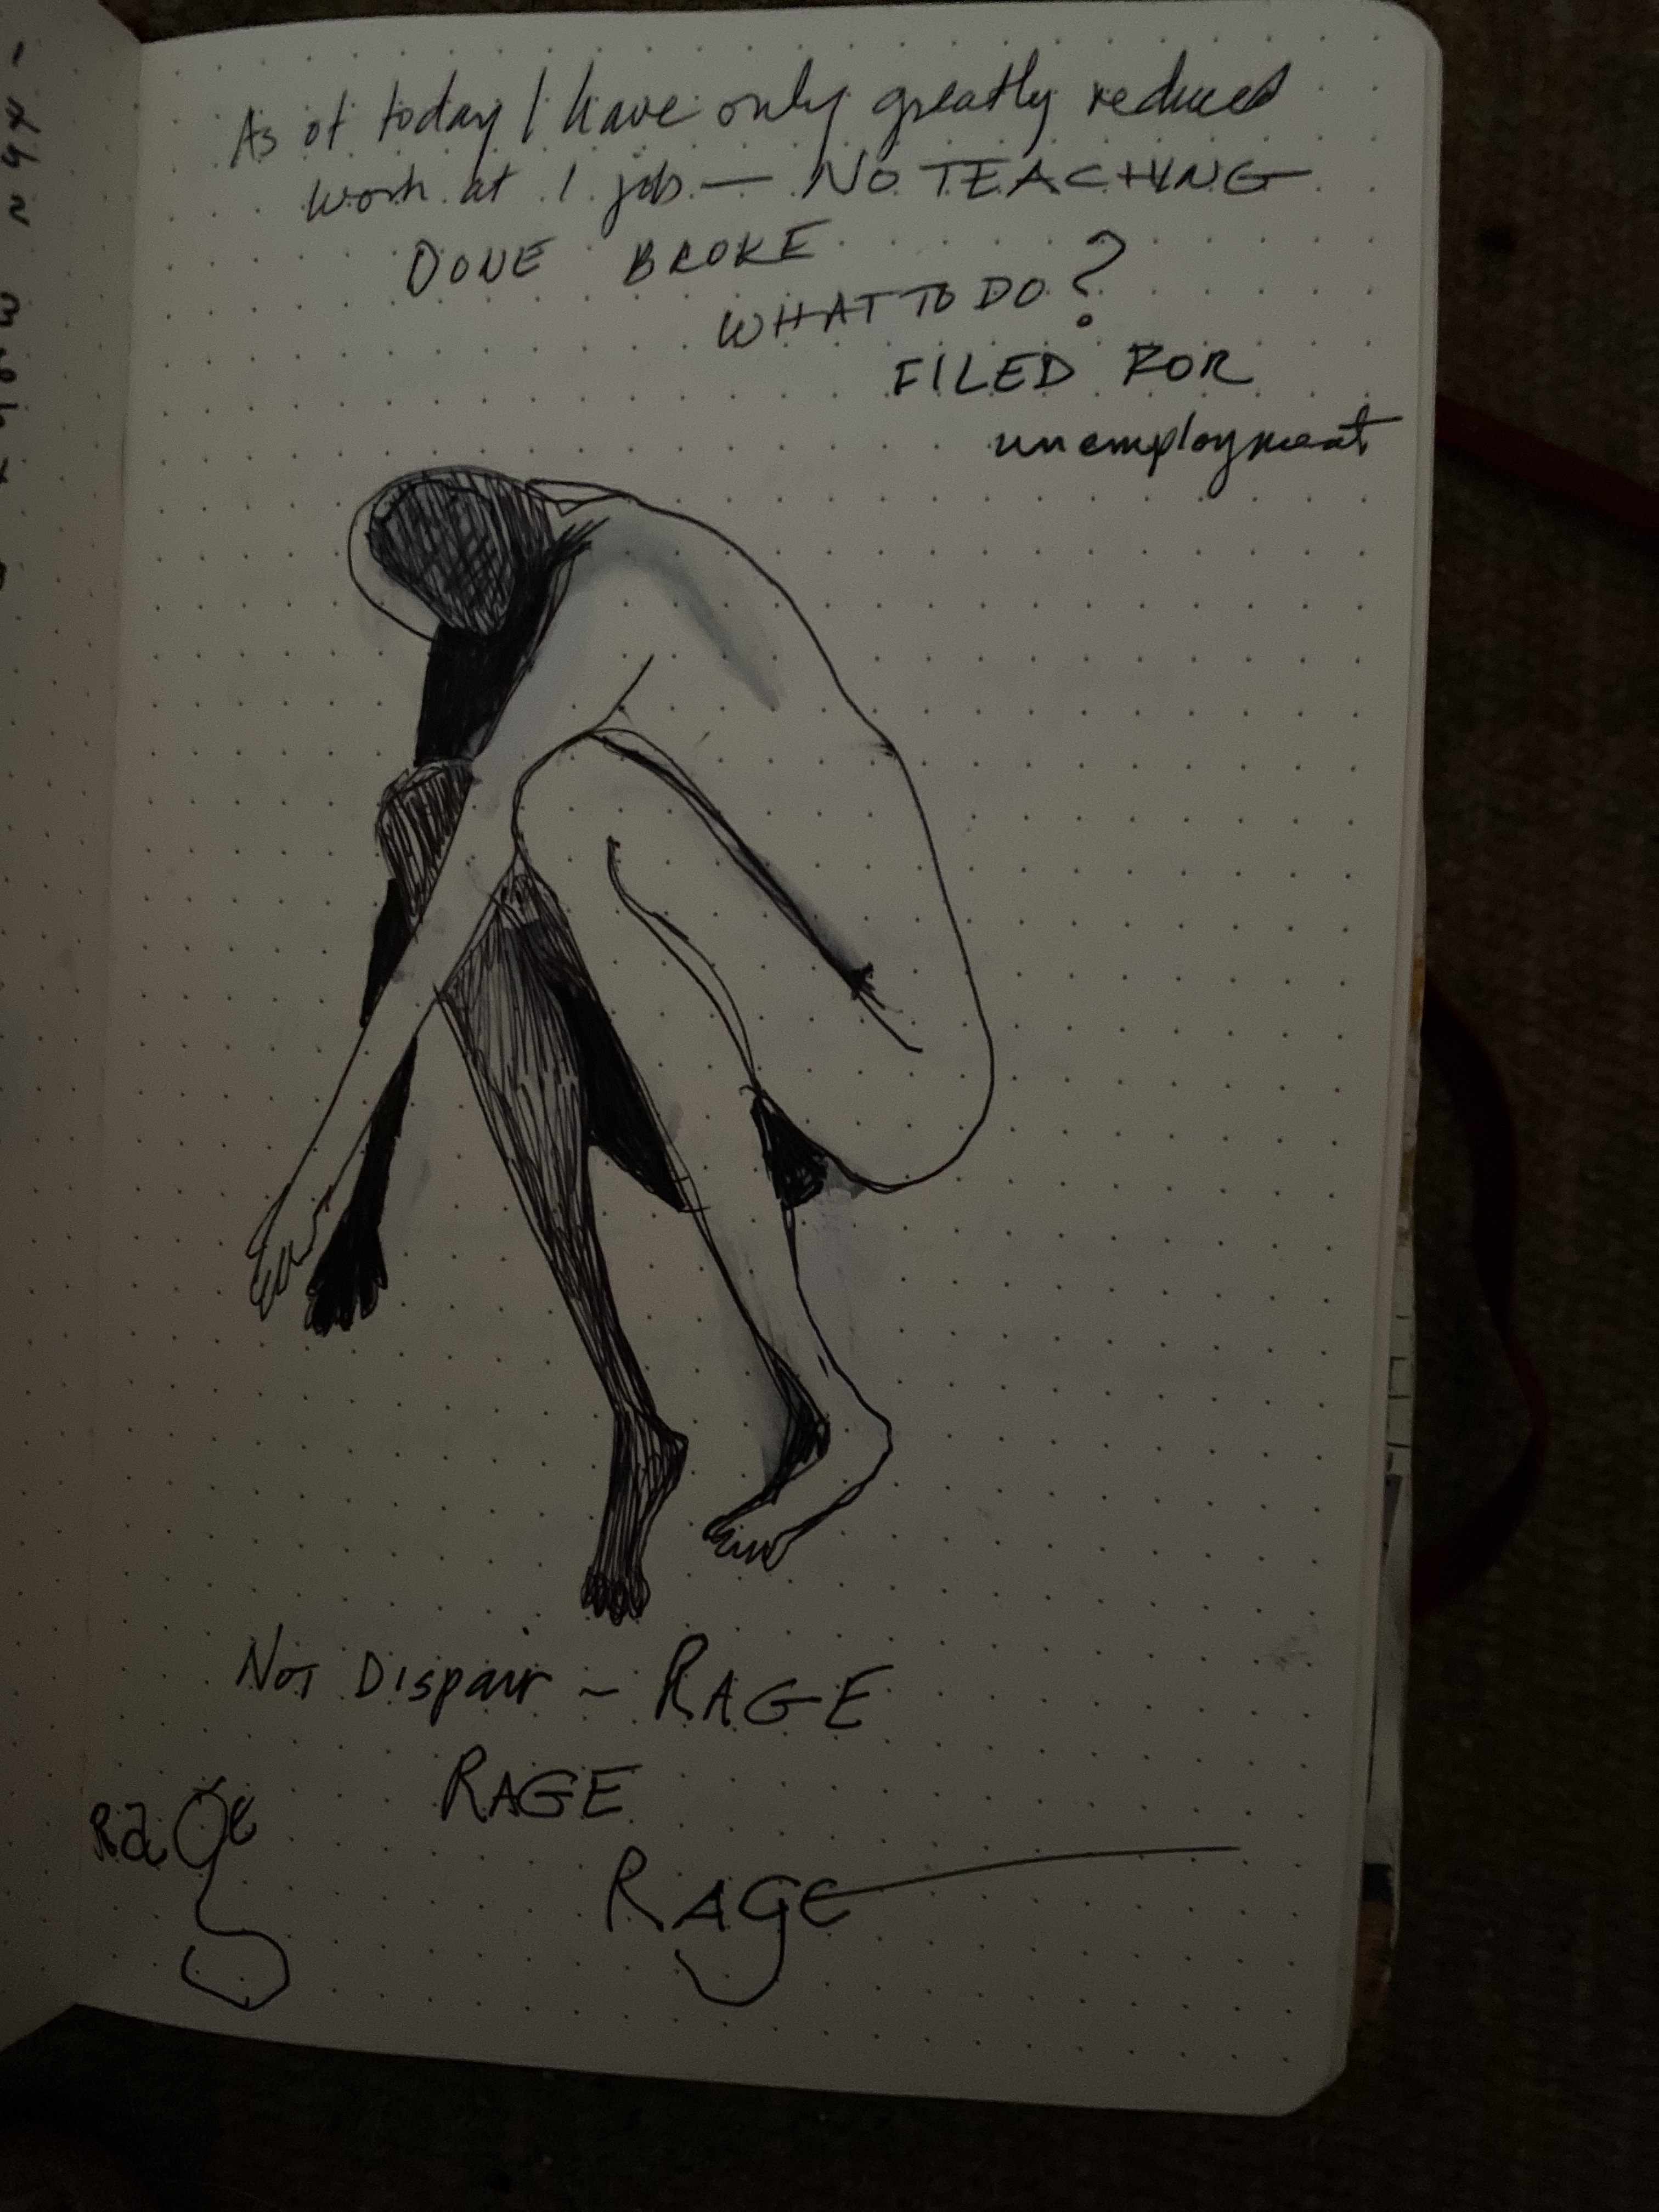 As of today I have only greatly reduced
work at 1 job — NO TEACHING
DONE BROKE
WHAT TO DO?
FILED FOR
unemployment
NOT DISpair ~ RAGE
RAGE
RaGe
RAge